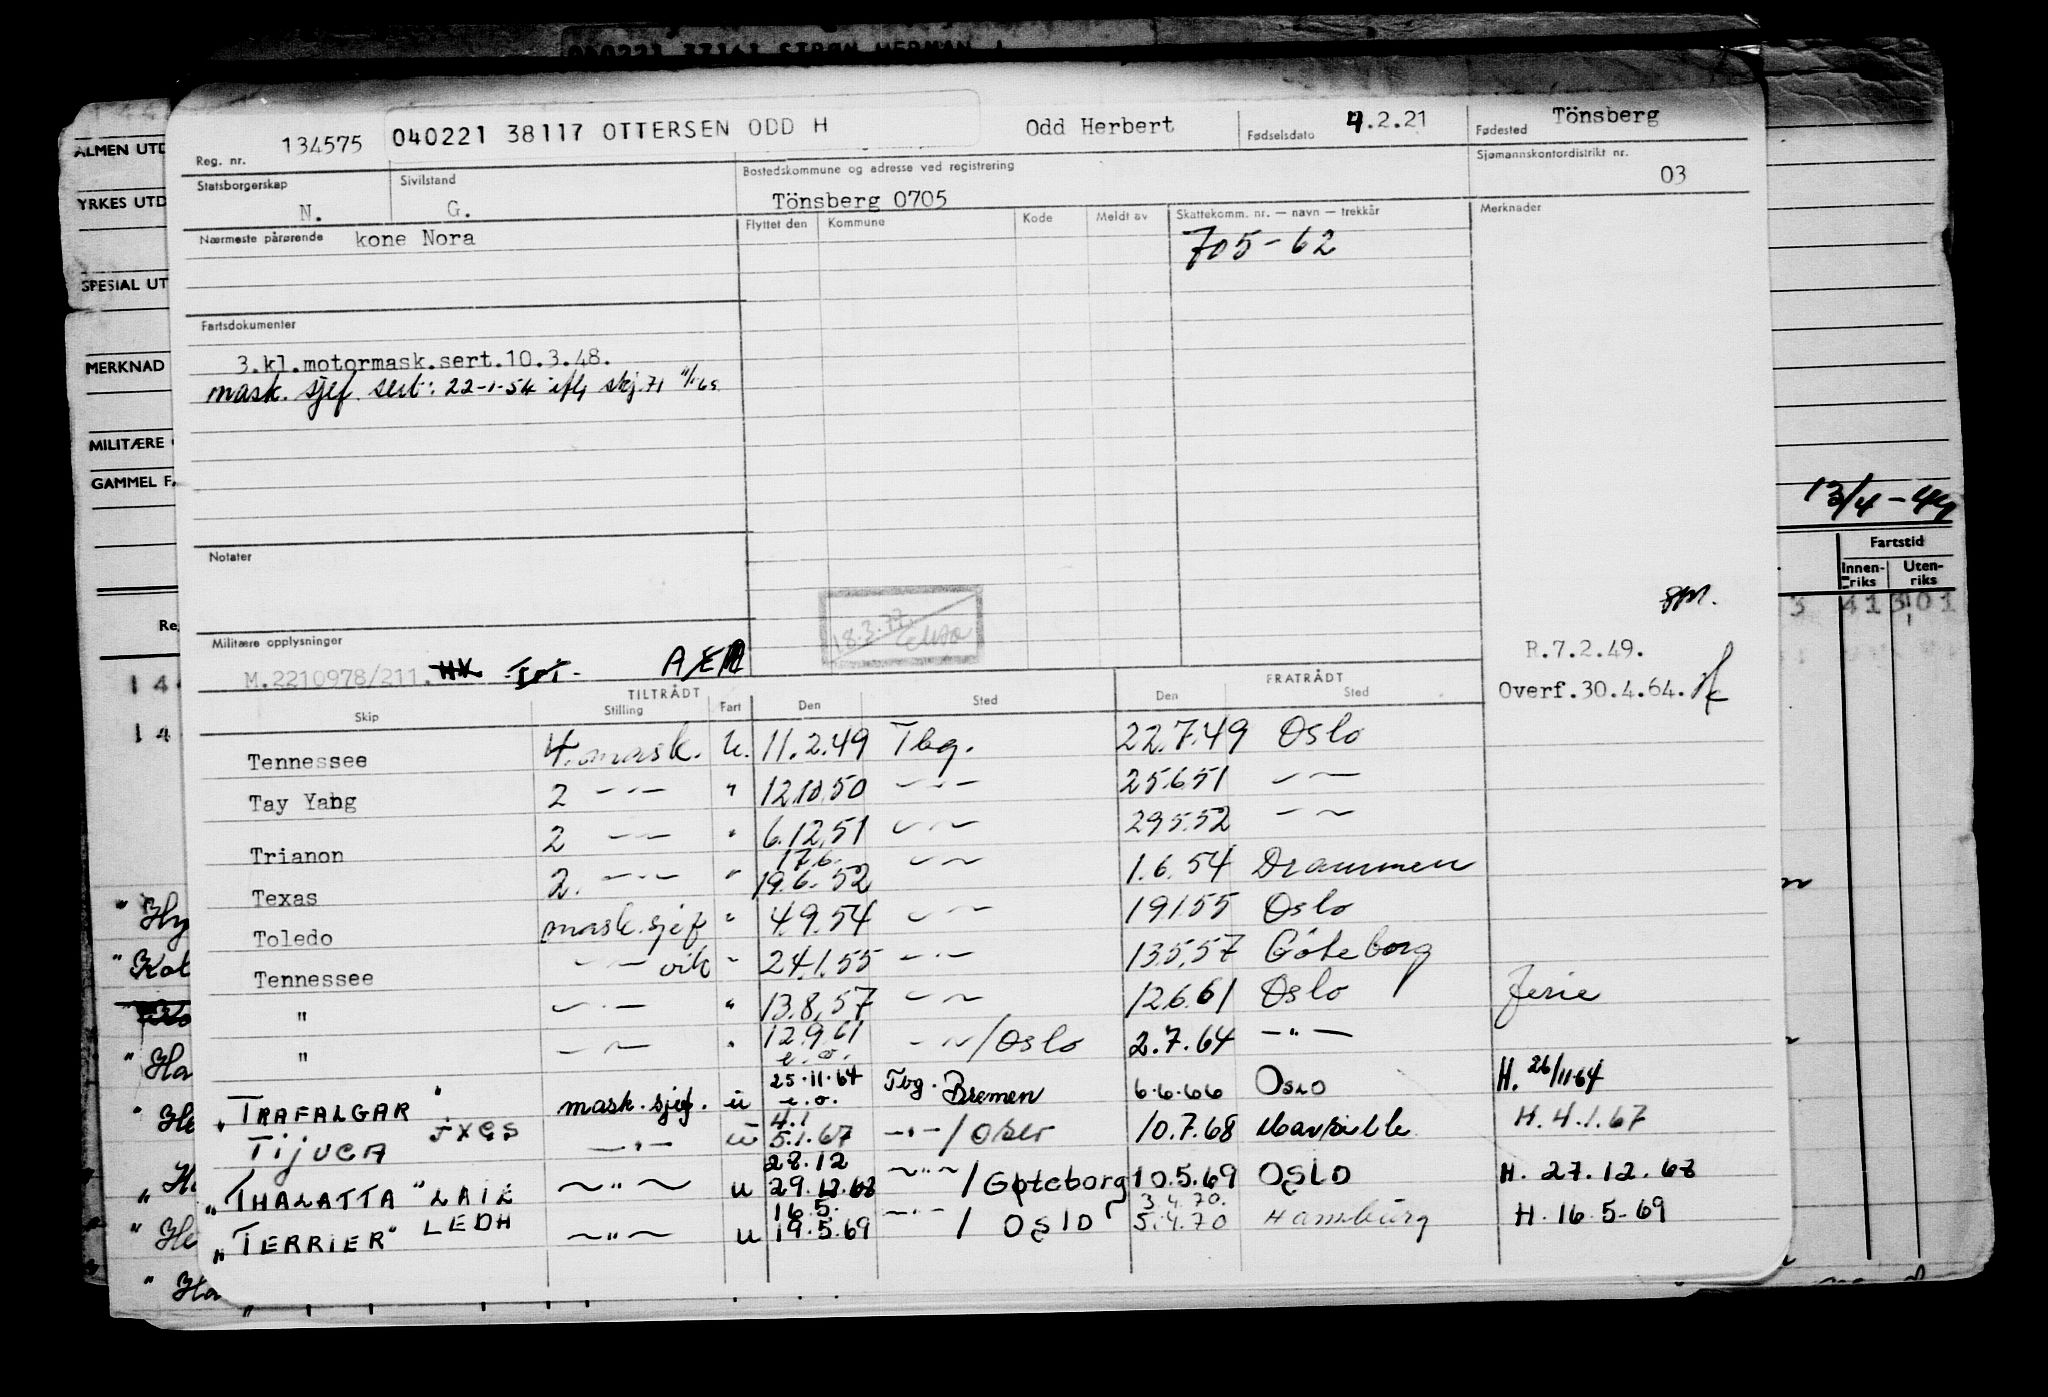 040221 37161 STRØM HERMAN
ALMEN UTD
YRKES UTD
SPESIAL UT
MERKNAD
MILITÆRE
GAMMEL F
Reg. nr. 134575 040221 38117 OTTERSEN ODD H Odd Herbert Fødselsdato 4.2.21 Fødested Tönsberg
Statsborgerskap N. Sivilstand G. Bostedskommune og adresse ved registrering Tönsberg 0705 Sjømannskontordistrikt nr. 03
Nærmeste pårørende kone Nora Flyttet den Kommune Kode Meldt av Skattekomm. nr. — navn — trekkår Merknader
705-62
Fartsdokumenter
3.kl.motormask.sert.10.3.48.
mask. sjef. sert: 22-1-54
Notater
18.3.
13/4-44
Fartstid
Innen-riks Uten-riks
Militære opplysninger
M.2210978/211.
R.7.2.49.
Overf.30.4.64.
TILTRÅDT FRATRÅDT
Skip Stilling Fart Den Sted Den Sted
Tennessee 4. mask. U. 11.2.49 Tbg. 22.7.49 Oslo
Tay Yang 2 —·— " 12.10.50 —·— 25.6.51 — —
Trianon 2 — — " 6.12.51 — — 29.5.52 — —
17.6.
Texas 2. —·— " 19.6.52 — — 1.6.54 Drammen
Toledo mask.sjef " 4.9.54 — — 19.1.55 Oslo
Tennessee — — vik " 24.1.55 —·— 13.5.57 Göteborg
" —·— " 13.8.57 — — 12.6.61 Oslo Ferie
" — — " 12.9.61 — — / Oslo 2.7.64 —"—
e.o.
"TRAFALGAR" mask. sjef. u 25.11.64 Tbg. Bremen 6.6.66 OSLO H. 26/11 64
e.o.
4.1
TIJUCA JXGS —·— u 5.1.67 —·— / Oslo 10.7.68 H. 4.1.67
28.12
"THALATTA" LAIL —"— u 29.12.68 —"— / Göteborg 10.5.69 OSLO H. 27.12.68
16.5. 3.4.70.
"TERRIER" LEDH —"— u 19.5.69 —·— / OSLO 5.4.70 Hamburg H. 16.5-69